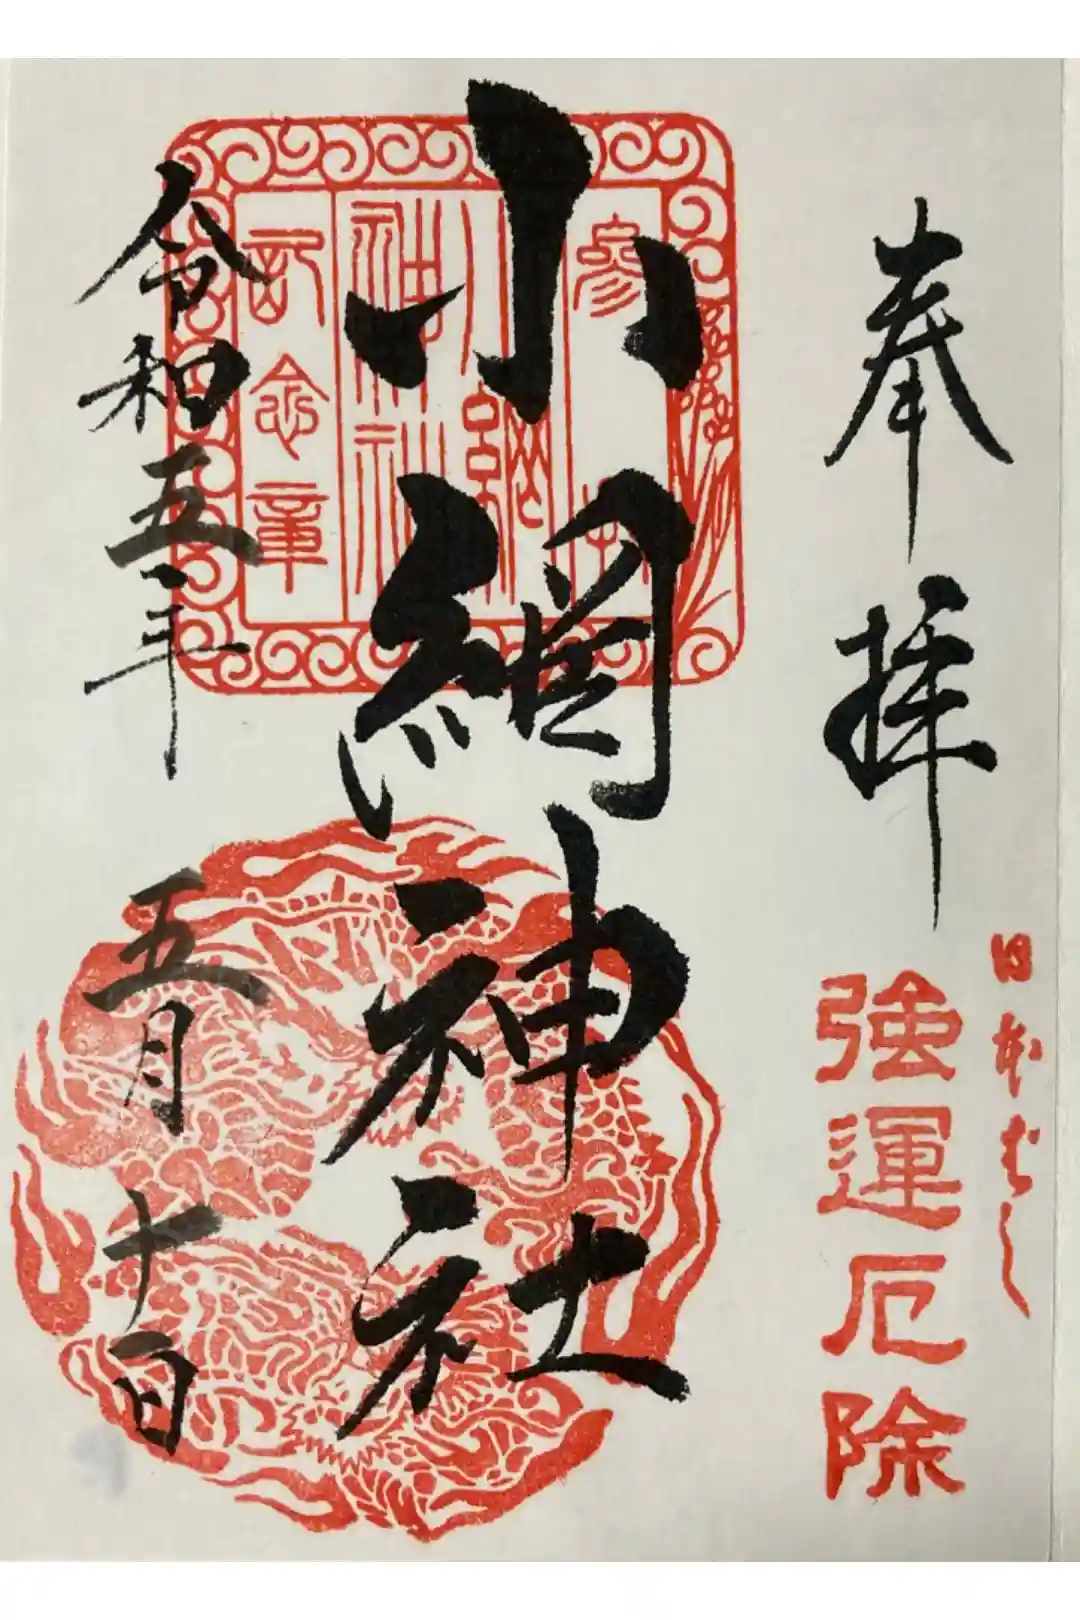 奉拝
日本ばし
強運厄除
小網神社
参拝
小網
神社
記念章
令和五年
五月
十日